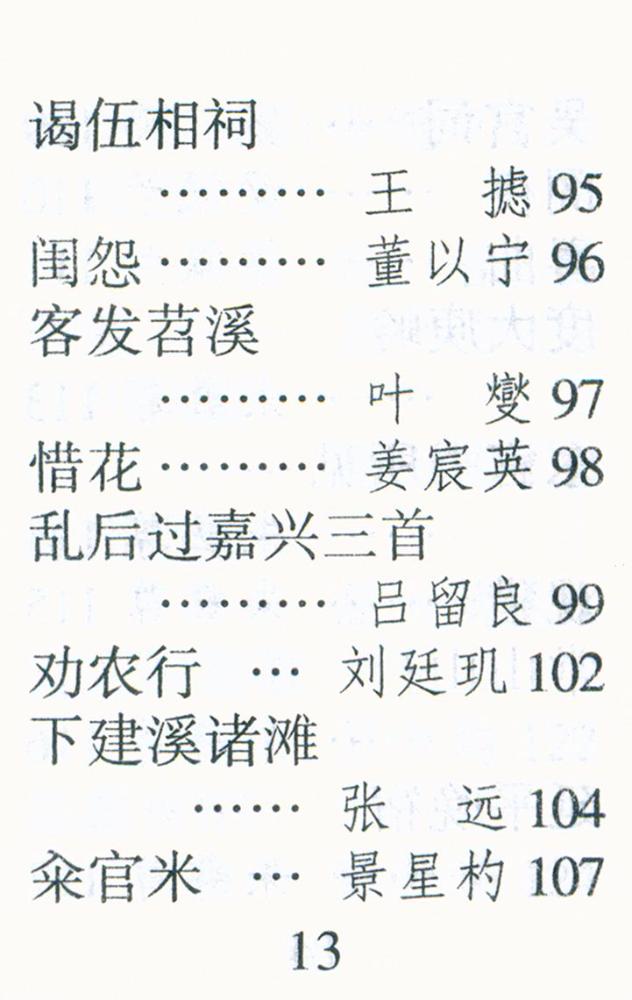 谒伍相祠
……… 王 摅 95
闺怨……… 董以宁 96
客发苕溪
……… 叶 燮 97
惜花……… 姜宸英 98
乱后过嘉兴三首
……… 吕留良 99
劝农行 … 刘廷玑 102
下建溪诸滩
…… 张 远 104
籴官米 … 景星杓 107
13